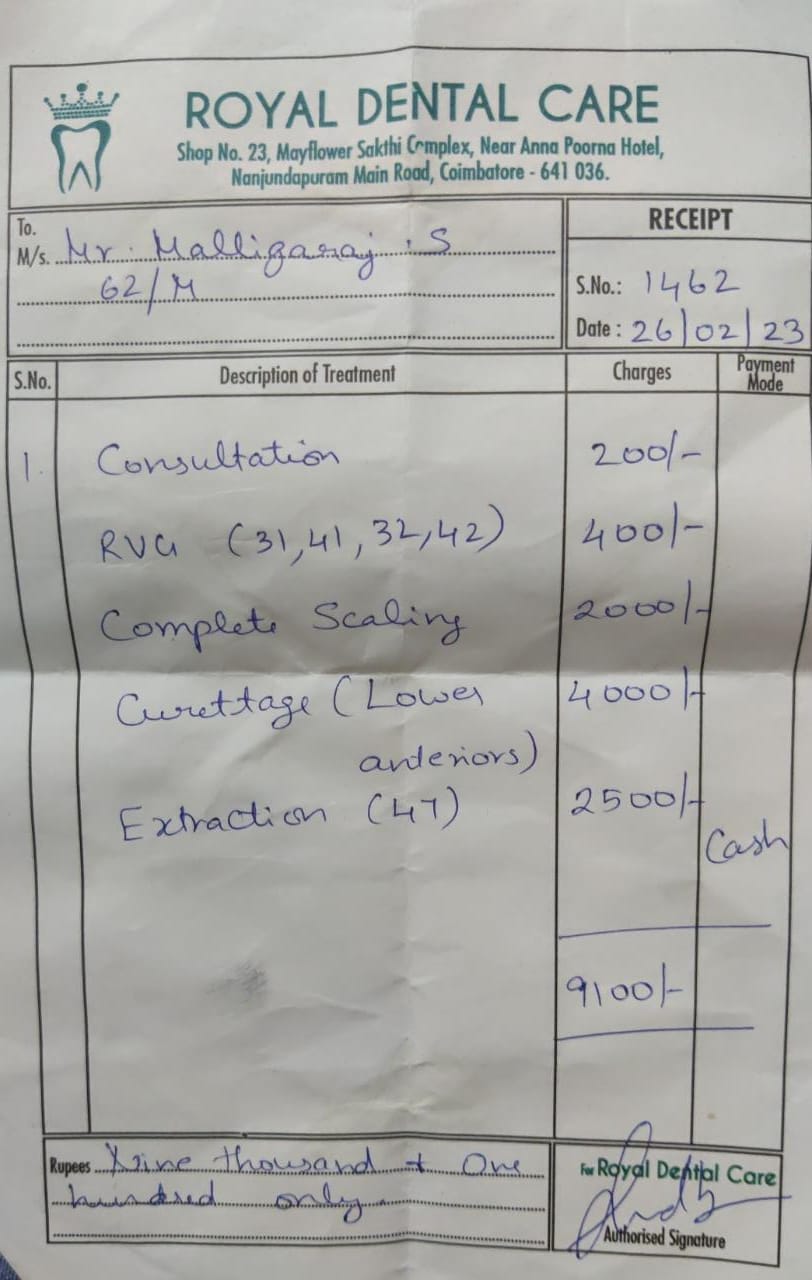 ROYAL DENTAL CARE
Shop No. 23, Mayflower Sakthi Complex, Near Anna Poorna Hotel,
Nanjundapuram Main Road, Coimbatore - 641 036.
To.
M/s. Mr. Malligaraj . S
62/M
RECEIPT
S.No.: 1462
Date : 26/02/23
S.No. Description of Treatment Charges Payment Mode
1. Consultation 200/-
RVG (31,41,32,42) 400/-
Complete Scaling 2000/-
Curettage (Lower 4000/-
anteriors)
Extraction (47) 2500/-
Cash
9100/-
Rupees Nine thousand + One
hundred only.
For Royal Dental Care
Authorised Signature